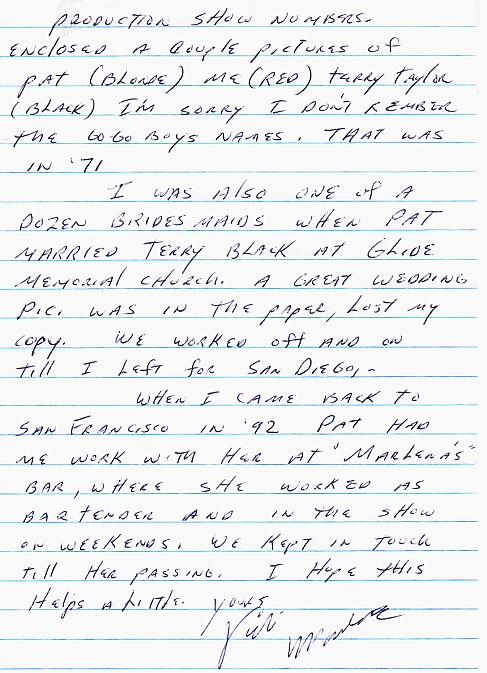 PRODUCTION SHOW NUMBERS.
ENCLOSED A COUPLE PICTURES OF
PAT (BLONDE) ME (RED) TERRY TAYLOR
(BLACK) I'M SORRY I DON'T REMBER
THE GOGO BOYS NAMES. THAT WAS
IN '71
I WAS ALSO ONE OF A
DOZEN BRIDESMAIDS WHEN PAT
MARRIED TERRY BLACK AT GLIDE
MEMORIAL CHURCH. A GREAT WEDDING
PIC. WAS IN THE PAPER, LOST MY
COPY. WE WORKED OFF AND ON
TILL I LEFT FOR SAN DIEGO,-
WHEN I CAME BACK TO
SAN FRANCISCO IN '92 PAT HAD
ME WORK WITH HER AT "MARLENA'S"
BAR, WHERE SHE WORKED AS
BARTENDER AND IN THE SHOW
ON WEEKENDS. WE KEPT IN TOUCH
TILL HER PASSING. I HOPE THIS
HELPS A LITTLE. YOURS